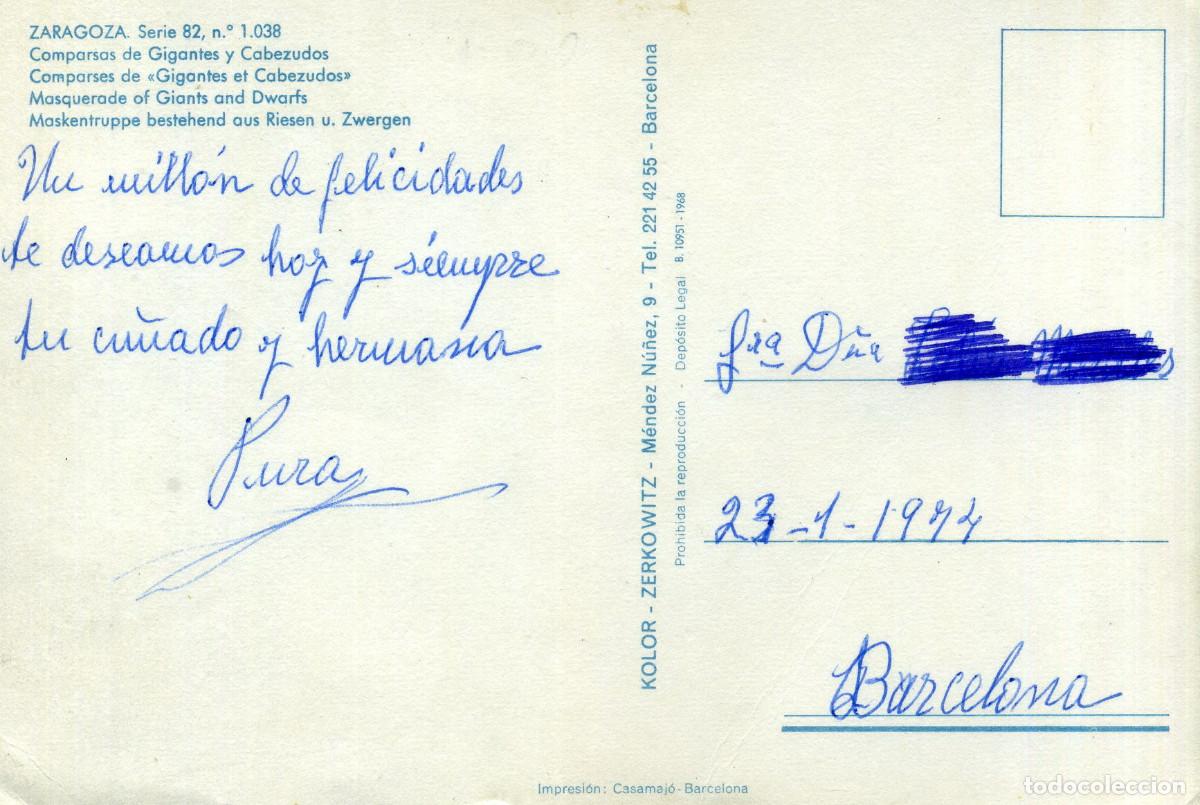 ZARAGOZA. Serie 82, n.° 1.038
Comparsas de Gigantes y Cabezudos
Comparses de «Gigantes et Cabezudos»
Masquerade of Giants and Dwarfs
Maskentruppe bestehend aus Riesen u. Zwergen
Un millón de felicidades
te deseamos hoy y siempre
tu cuñado y hermana
Pura
KOLOR - ZERKOWITZ - Méndez Núñez, 9 - Tel. 221 42 55 - Barcelona
Prohibida la reproducción - Depósito Legal B. 10951-1968
Sra Dña
23-1-1974
Barcelona
Impresión: Casamajó-Barcelona
todocoleccion